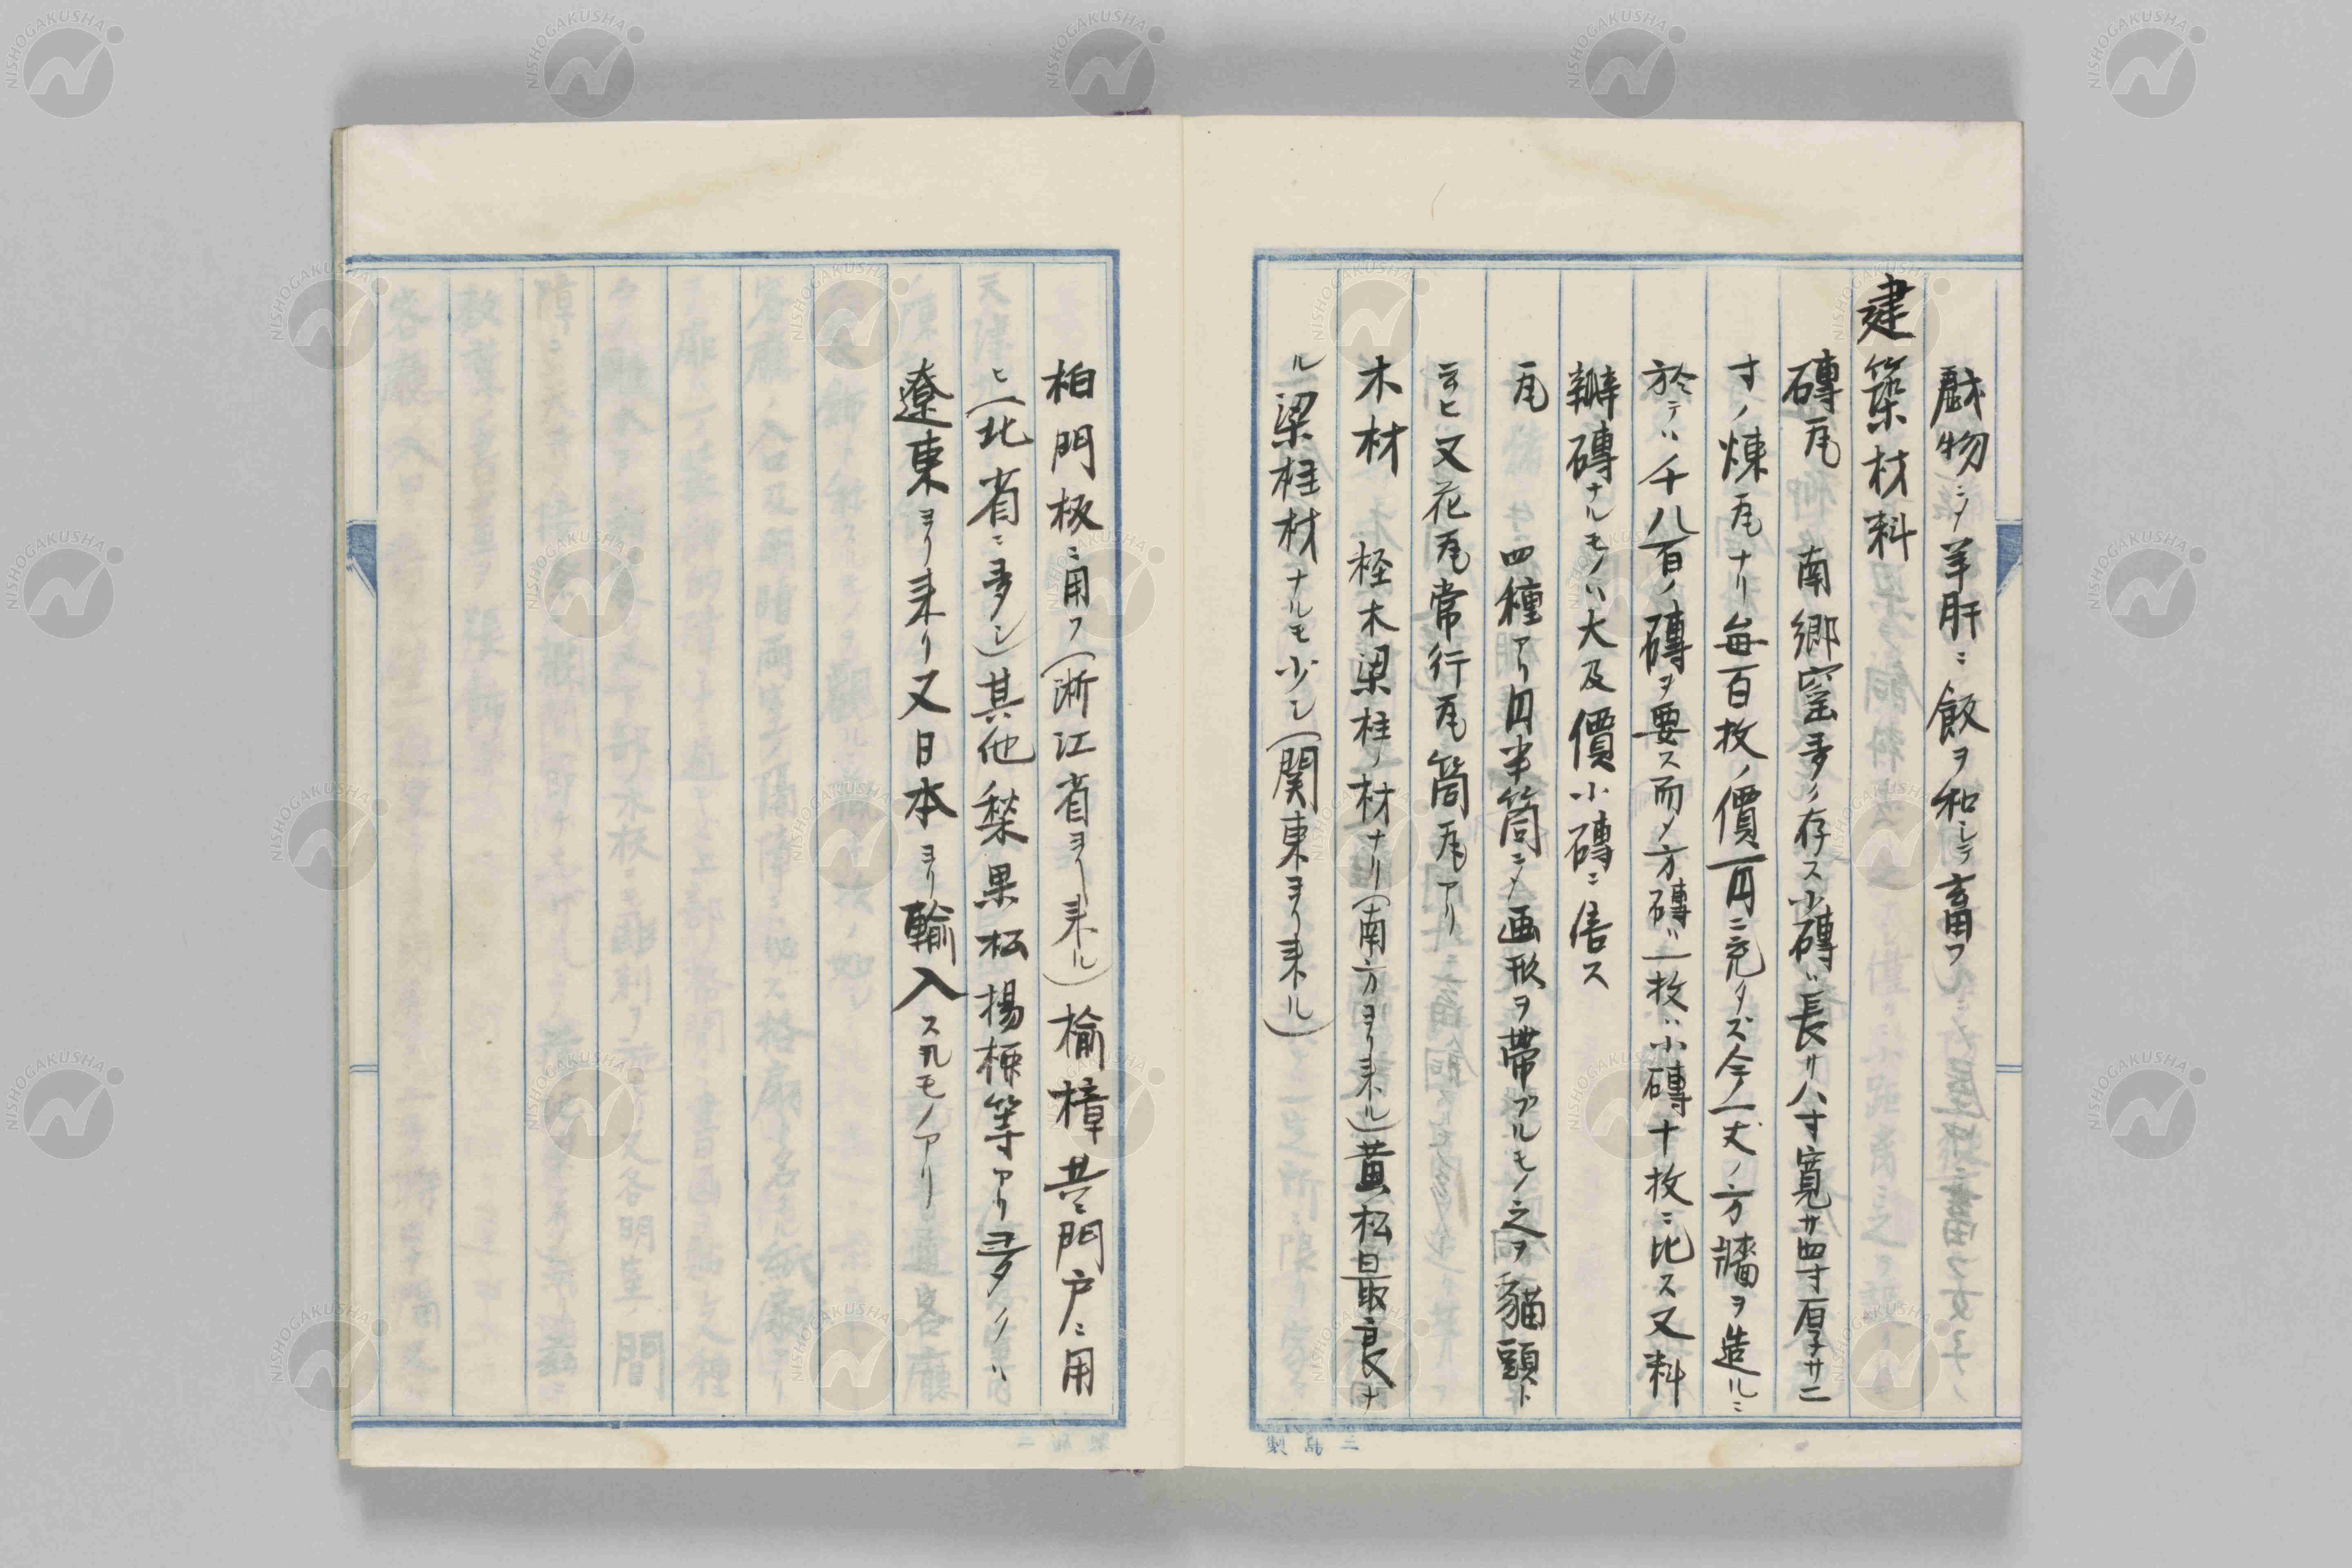 戯物ニシテ羊肝ニ飯ヲ和シテ畜フ
建築材料
磚瓦 南郷窑多ク存ス小磚ハ長サ八寸寛サ四寸厚サ二
寸ノ煉瓦ナリ毎百枚ノ價一円ニ充タズ今一丈ノ方牆ヲ造ルニ
於テハ千八百ノ磚ヲ要ス而メ方磚ハ一枚ハ小磚十枚ニ比ス又料
瓣磚ナルモノハ大及價小磚ニ倍ス
瓦 四種アリ円半筒ニメ画形ヲ帶ブルモノ之ヲ貓頭ト
云ヒ又花瓦常行瓦筒瓦アリ
木材 柽木梁柱ノ材ナリ(南方ヨリ来ル)黄松最良ナ
ル梁柱材ナルモ少シ(関東ヨリ来ル)
柏門板ニ用フ(浙江省ヨリ来ル)榆樟共ニ門戸ニ用
ヒ(北省ニ多シ)其他梨果松楊楝等アリ多クハ
遼東ヨリ来リ又日本ヨリ輸入スルモノアリ